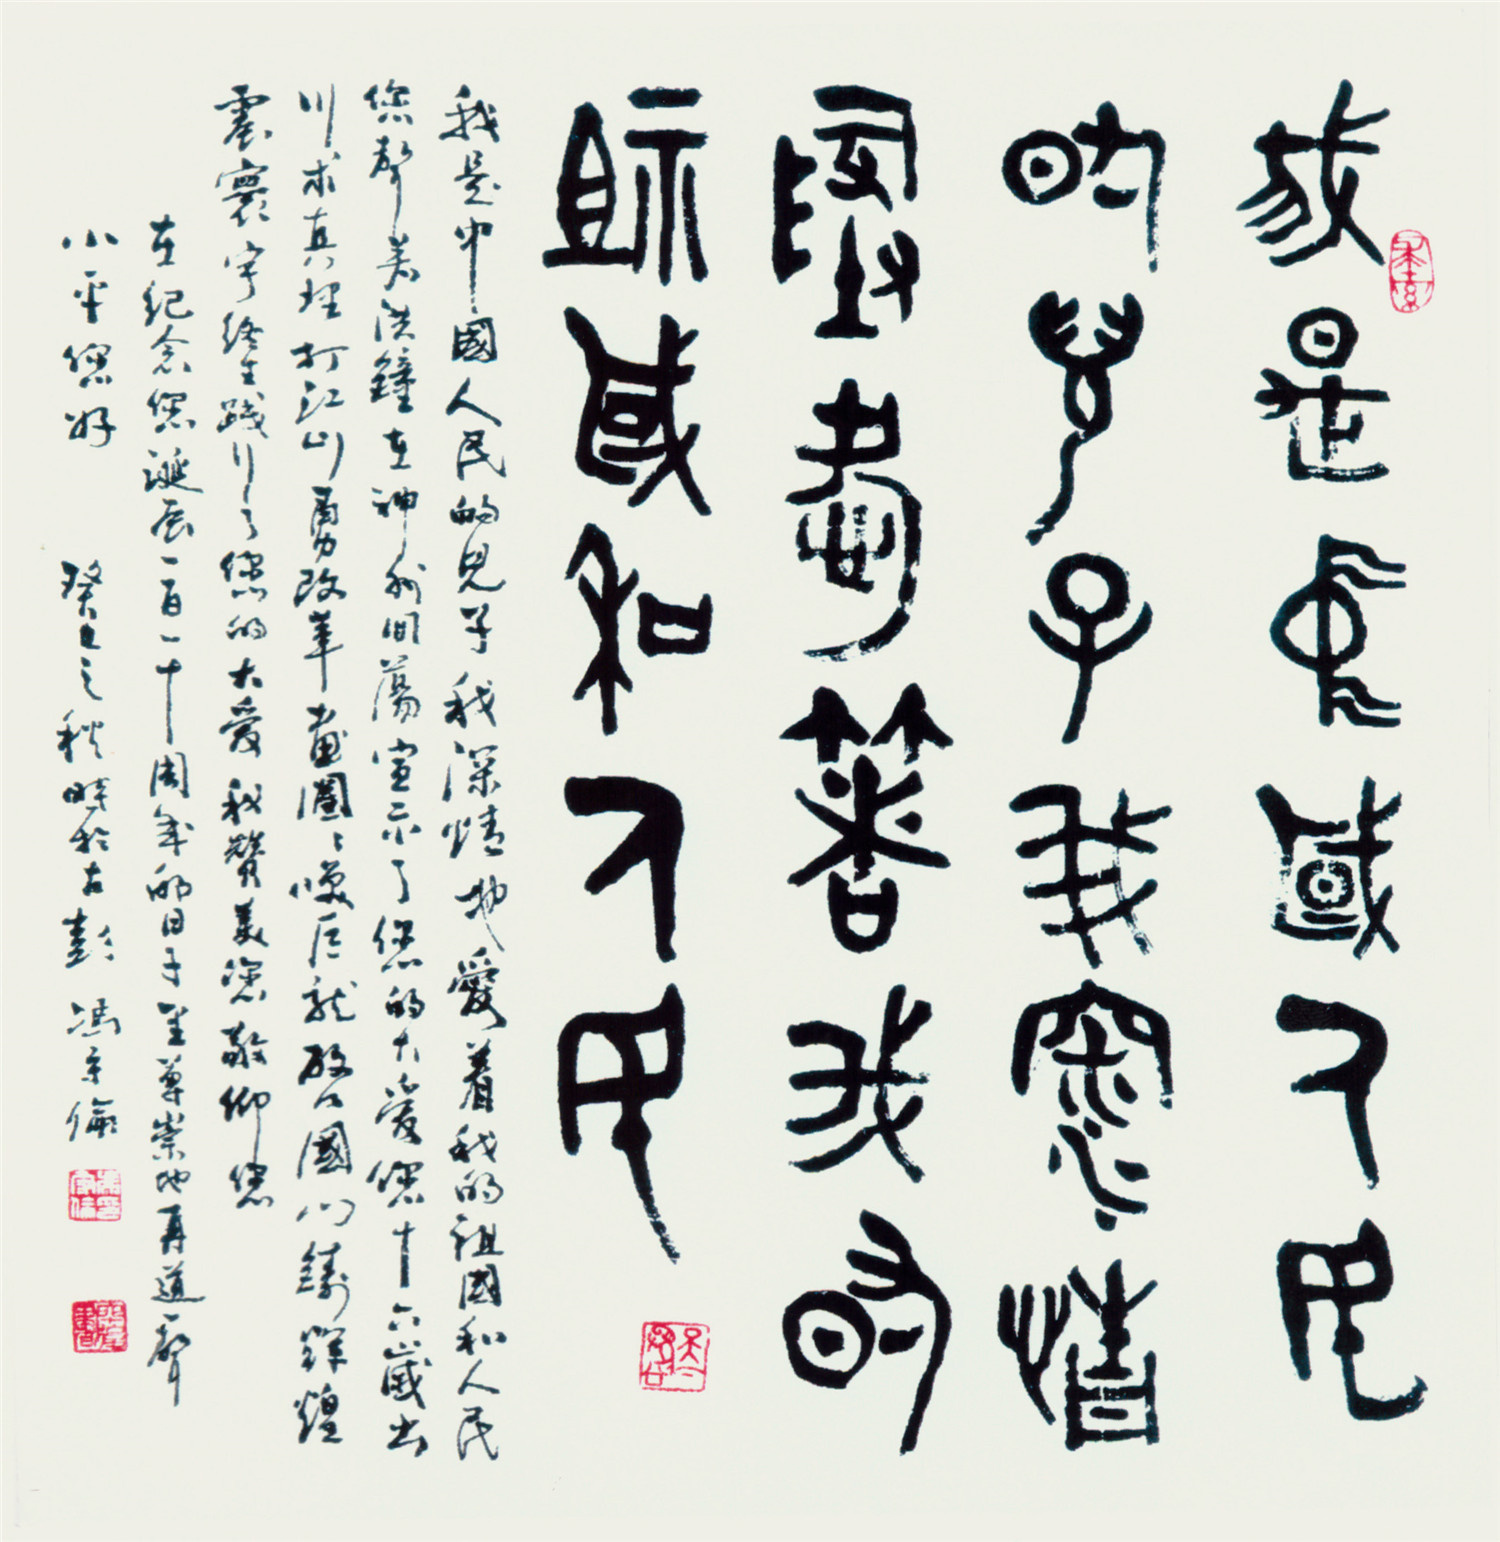 我是中国人民
的儿子我深情
地爱着我的
祖国和人民
我是中國人民的兒子我深情地愛着我的祖國和人民
您聲若洪鐘在神州間蕩宣示了您的大愛您十六歲出
川求真理打江山勇改革畫圖圖喚巨龍啟國門鑄輝煌
震寰宇終生踐行了您的大愛我贊美您敬仰您
在紀念您誕辰一百一十周年的日子里尊崇地再道一聲
小平您好 癸巳之秋時於古彭 馮宗倫